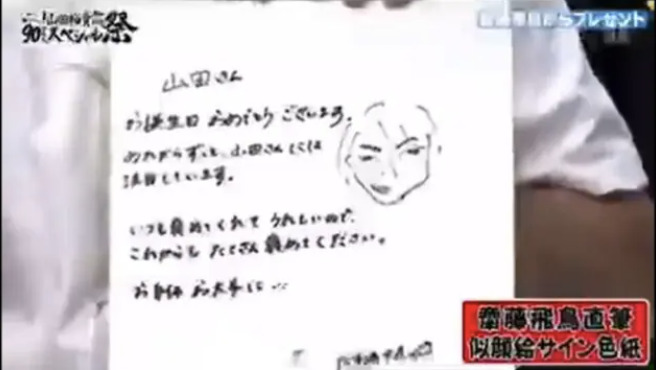 山田裕貴
90分スペシャル祭
プレゼント
山田さん
お誕生日 おめでとう ございます。
山田さんには
注目しています。
いつも褒めてくれて うれしいので、
これからも たくさん褒めてください。
お身体 お大事に…
齋藤飛鳥直筆
似顔絵サイン色紙